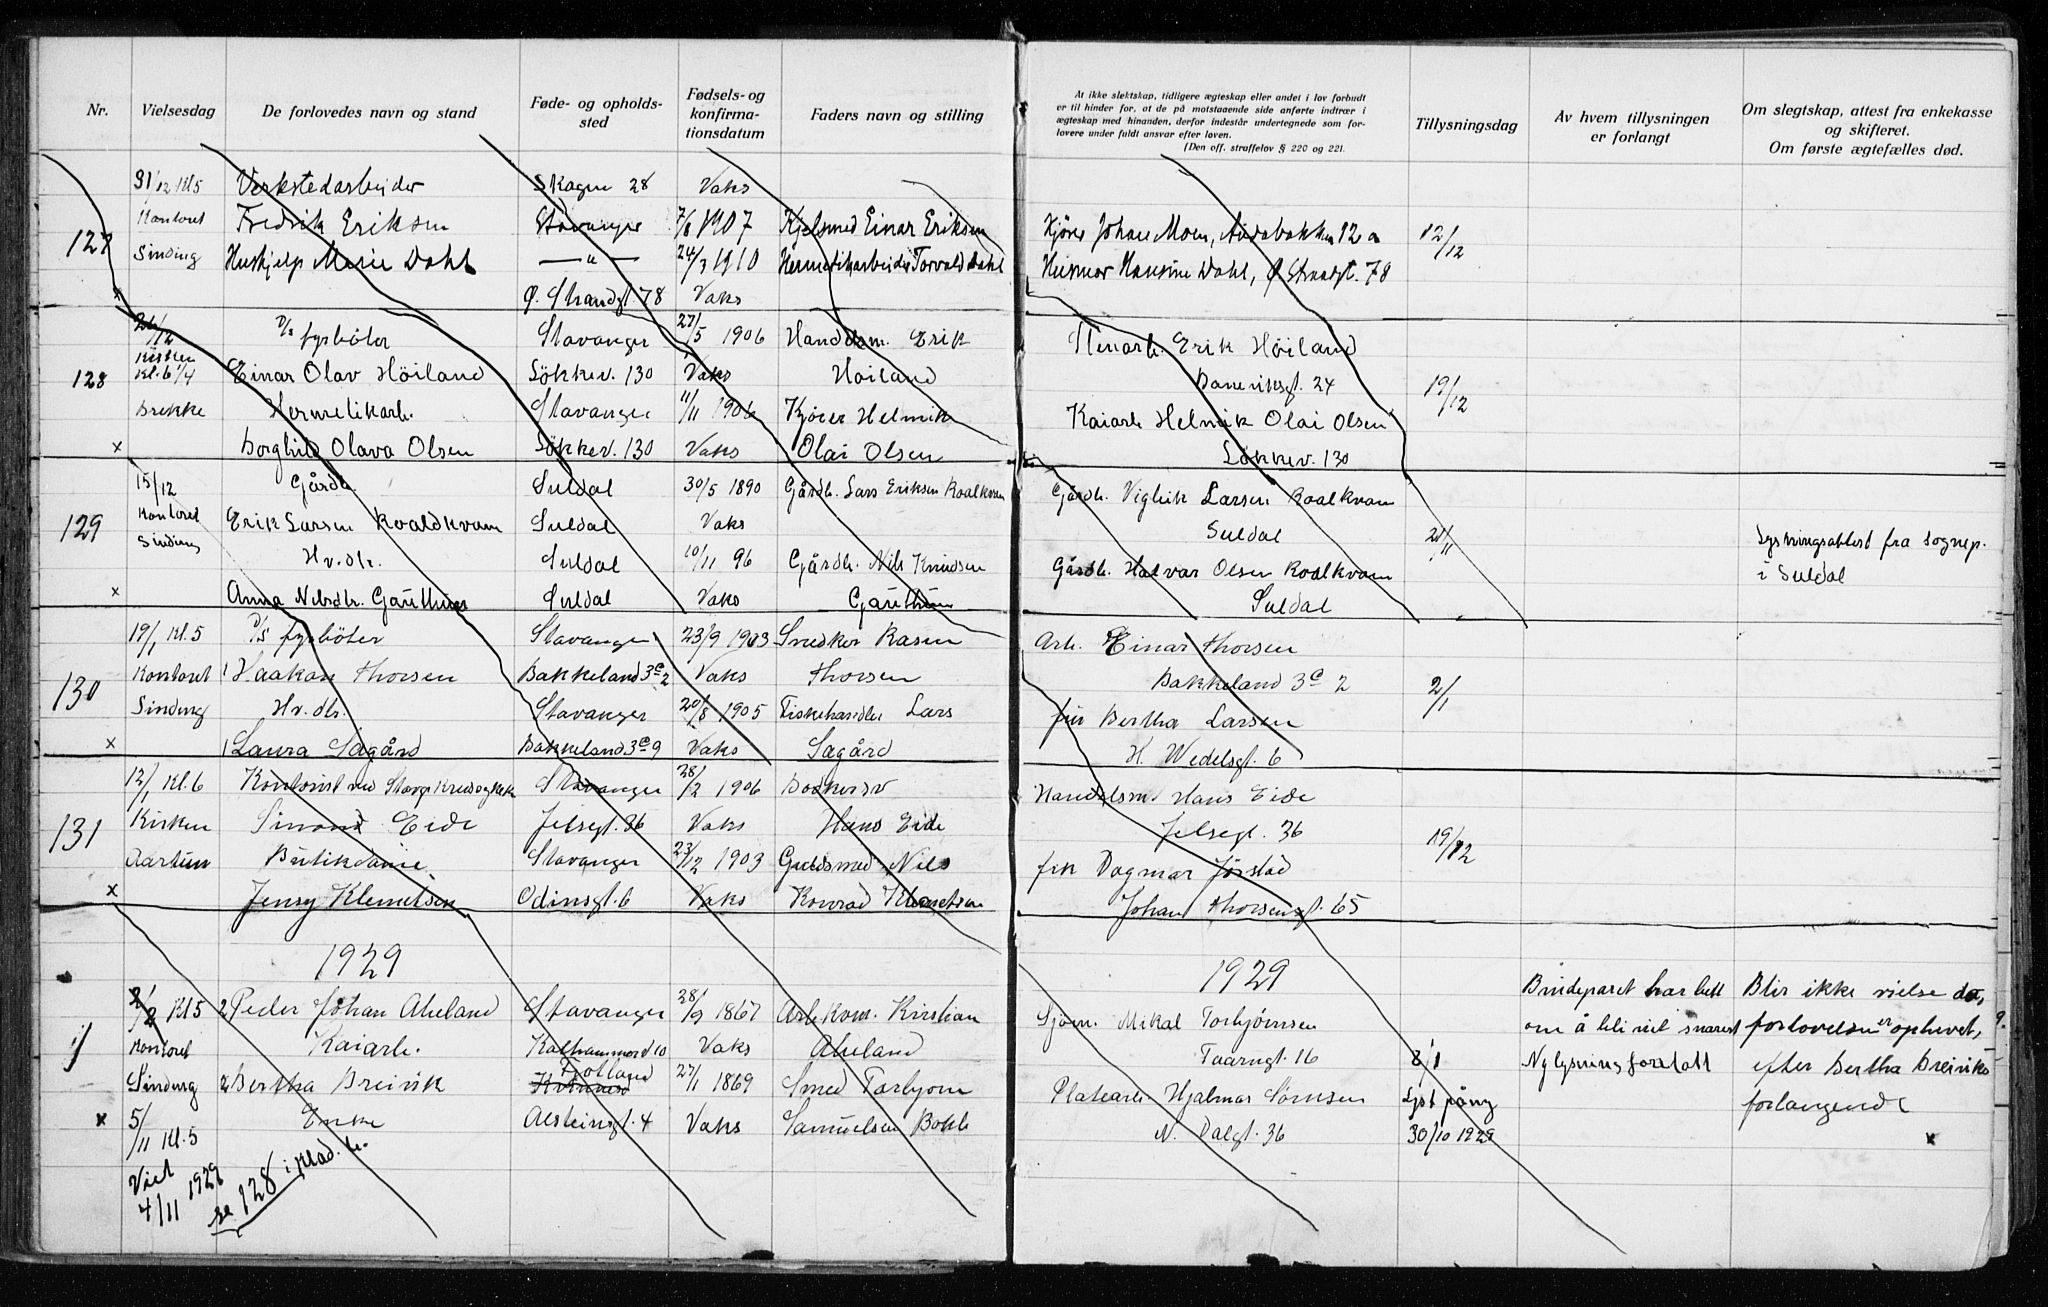 Nr. Vielsesdag De forlovedes navn og stand Føde- og opholds-sted Fødsels- og konfirma-tionsdatum Faders navn og stilling
At ikke slektskap, tidligere ægteskap eller andet i lov forbudt
er til hinder for, at de på motstaaende side anførte indtrær i
ægteskap med hinanden, derfor indestår undertegnede som for-
lovere under fuldt ansvar efter loven.
(Den off. straffelov § 220 og 221.
Tillysningsdag
Av hvem tillysningen
er forlangt
Om slegtskap, attest fra enkekasse
og skifteret.
Om første ægtefælles død.
31/12 Kl 5 Verkstedarbeider Skagen 28 Vaks
127 Kontoret Fredrik Eriksen Stavanger 7/8 1907 Kjelsmed Einar Eriksen Kjører Johan Moen, 12 a 12/12
Sinding Hushjelp Marie Dahl — " — 24/3 1910 Hermetikarbeider Torvald Dahl Husmor Hansine Dahl, Ø Strandgt. 78
Ø. Strandgt. 78 Vaks
26/12 D/s fyrböter Stavanger 27/5 1906 Handelsm. Erik Erik Höiland
128 Kirken Kl. 6 1/4 Einar Olav Höiland Lökkev. 130 Vaks Höiland 24 19/12
Brekke Hermetikarb. Stavanger 11/11 1906 Kjörer Helmik Kaiarb Helmik Olai Olsen
x Borghild Olava Olsen Lökkev. 130 Vaks Olai Olsen Lökkev. 130
15/12 Gårdb. Suldal 30/5 1890 Gårdb. Lars Eriksen Roalkvam Gårdb. Viglik Larsen Roalkvam
129 Kontoret Erik Larsen Roaldkvam Suldal Vaks Suldal
Sinding Hv.dtr. Suldal 10/11 96 Gårdb. Nils Knudsen Gårdb. Halvar Olsen Roalkvam Lysningsattest fra sognep.
x Anna Nilsdtr. Garthun Suldal Vaks Garthun Suldal i Suldal
19/1 Kl. 5 D/s fyrböter Stavanger 23/9 1903 Snedker Rasm Arb. Einar Thorsen
130 Kontoret Haakon Thorsen Bakkeland 3c 2 Vaks Thorsen Bakkeland 3c 2 2/1
Sinding Hv. dtr. Stavanger 20/8 1905 Fiskehandler Lars frk Bertha Larsen
x Laura Sagård Bakkeland 3c 9 Vaks Sagård H. Wedelsgt. 6
12/1 Kl. 6 Kontorist ved Stavanger 28/2 1906 Handelsm. Hans Eide
131 Kirken Simon Eide Jelsegt. 36 Vaks Hans Eide Jelsegt. 36 19/12
Aartun Butikdame Stavanger 23/12 1903 Guldsmed Nils frk Dagmar Jørstad
x Jenny Klemetsen Odinsgt. 6 Vaks Konrad Klemetsen Johan Thorsensgt. 65
1929 1929
2/2 Kl 5 2 Peder Johan Aheland Stavanger 28/9 1867 Arb kom. Kristian Sjöm. Mikal Torbjørnsen Brudeparet har bett Blir ikke vielse da,
1 Kontoret Kaiarb. Kalhammerv 10 Vaks Aheland Taarngt. 16 8/1 om å bli viet snarest forlovelsen er ophevet,
Sinding 2 Bertha Breivik 27/1 1869 Smed Torbjørn Platearb. Hjalmar Sørnsen Lyst påny Ny lysning foretatt efter Bertha Breiviks
x 5/11 Kl. 5 Enke Alsteinsgt. 4 Vaks Samuelsen Bokk N. Dalgt. 36 30/10 1929 forlangende
x
Viet
4/11 1929
se 128 i klad.b.